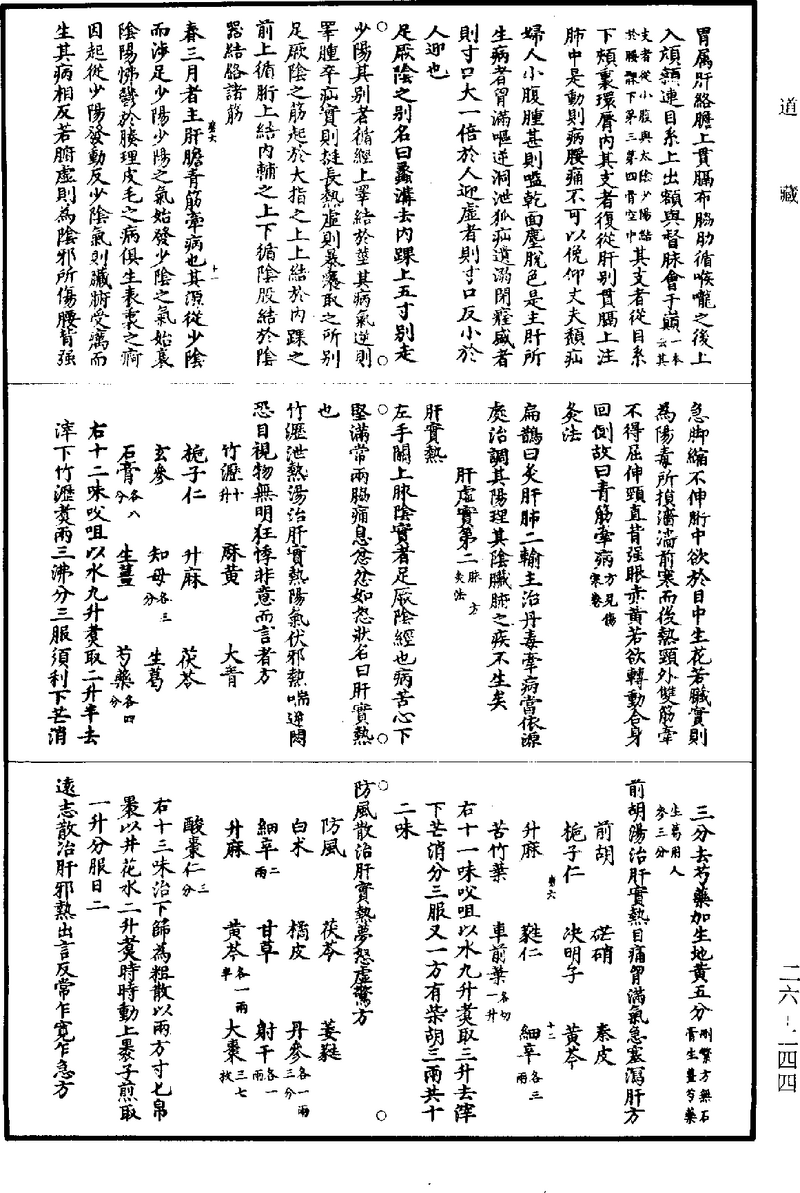 道藏
胃屬肝絡膽上貫膈布脇肋循喉嚨之後上
入頏顙連目系上出額與督脉會于巔一本云其
支者從小腹與太陰少陽結於腰髁下第三第四骨空中其支者從目系
下頰裏環脣內其支者復從肝別貫膈上注
肺中是動則病腰痛不可以俛仰丈夫㿗疝
婦人小腹腫甚則嗌乾面塵脫色是主肝所
生病者胃滿嘔逆洞泄狐疝遺溺閉癃盛者
則寸口大一倍於人迎虛者則寸口反小於
人迎也
足厥陰之別名曰蠡溝去內踝上五寸別走
少陽其別者循經上睪結於莖其病氣逆則
睪腫卒疝實則挺長熱虛則暴癢取之所別
足厥陰之筋起於大指之上上結於內踝之
前上循胻上結內輔之上下循陰股結於陰
器結絡諸筋
卷六
十一
春三月者主肝膽青筋牽病也其源從少陰
而涉足少陽少陽之氣始發少陰之氣始衰
陰陽怫鬱於腠理皮毛之病俱生表裏之痾
因起從少陽發動反少陰氣則臟腑受癘而
生其病相反若腑虛則為陰邪所傷腰背强
急脚縮不伸胻中欲於目中生花若臟實則
為陽毒所損濇濇前寒而後熱頸外雙筋牽
不得屈伸頸直背强眼赤黃若欲轉動合身
回倒故曰青筋牽病方見傷寒卷
灸法
扁鵲曰灸肝肺二輸主治丹毒牽病當依源
處治調其陽理其陰臟腑之疾不生矣
肝虛實第二脉 方 灸法
肝實熱
左手關上脉陰實者足厥陰經也病苦心下
堅滿常兩脇痛息忿忿如怒狀名曰肝實熱
也
竹瀝泄熱湯治肝實熱陽氣伏邪熱喘逆悶
恐目視物無明狂悸非意而言者方
竹瀝十升 麻黃 大青
梔子仁 升麻 茯苓
玄參 知母各三分 生葛
石膏各八分 生薑 芍藥各四分
右十二味㕮咀以水九升煑取二升半去
滓下竹瀝煑兩三沸分三服須利下芒消
三分去芍藥加生地黃五分刪繁方無石膏生薑芍藥
生葛用人參三分
前胡湯治肝實熱目痛胃滿氣急塞瀉肝方
前胡 硭硝 秦皮
梔子仁 决明子 黃芩
卷六
十二
升麻 蕤仁 細辛各三兩
苦竹葉 車前葉各切一升
右十一味㕮咀以水九升煑取三升去滓
下芒消分三服又一方有柴胡三兩共十
二味
防風散治肝實熱夢怒虛驚方
防風 茯苓 萎蕤
白术 橘皮 丹參各一兩三分
細辛二兩 甘草 射干各一兩
升麻 黃芩各一兩半 大棗三七枚
酸棗仁三分
右十三味治下篩為粗散以兩方寸匕帛
裹以井花水二升煑時時動上裹子煎取
一升分服日二
遠志散治肝邪熱出言反常乍寬乍急方
二六-一四四